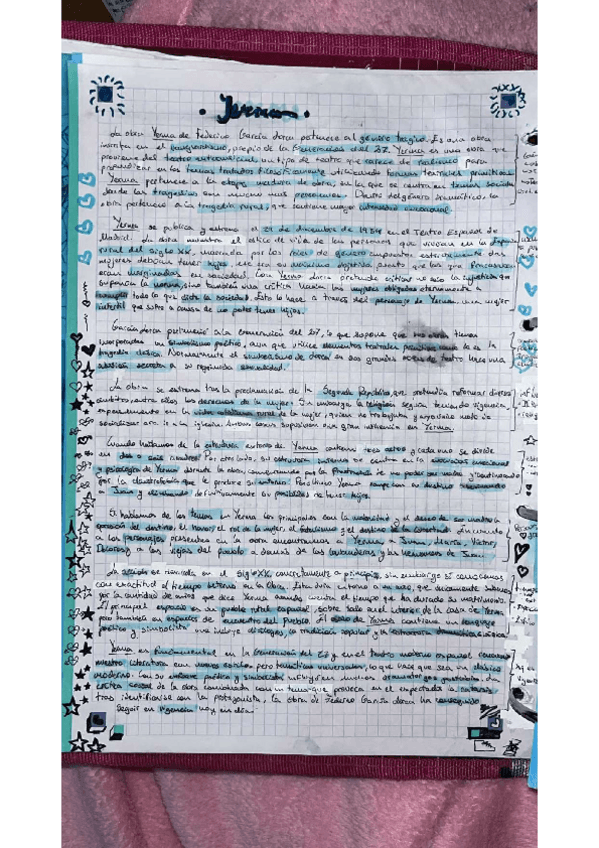 Yerma
La obra Yerma de Federico García Lorca pertenece al género trágico. Es una obra
inscrita en el vanguardismo, propio de la Generación del 27. Yerma es una obra que
proviene del teatro un tipo de teatro que carece de realismo para
profundizar en los temas tratados utilizando formas teatrales primitivas.
Yerma pertenece a la etapa madura de obra, en la que se centra en temas sociales
siendo las tragedias sus obras más personales. Dentro del género dramático la
obra pertenece a la tragedia rural, que contiene mayor
Yerma se publica y estrena el 29 de diciembre de 1934 en el Teatro Español de
Madrid. La obra muestra el estilo de vida de las personas que vivían en la España
rural del siglo XX, marcada por los roles de género impuestos Las
mujeres debían tener hijos, era su objetivo, puesto que las que fracasaban
eran marginadas en sociedad. Con Yerma Lorca pretende criticar no solo la injusticia que
suponía la norma, sino también una crítica hacia las mujeres obligadas eternamente a
todo lo que dicta la sociedad. Esto lo hace a través del personaje de Yerma, una mujer
infértil que sufre a causa de no poder tener hijos.
García Lorca perteneció a la Generación del 27, lo que supone que sus obras tienen
incorporadas un simbolismo poético, aunque utilice elementos teatrales como lo es la
tragedia clásica. Normalmente el de Lorca en sus grandes obras de teatro tiene una
La obra se estrena tras la proclamación de la Segunda República, que pretendía reformar diversos
ámbitos, entre ellos los derechos de la mujer. Sin embargo la seguía teniendo vigencia,
especialmente en la rural de la mujer, quien no trabajaba y cuyo único modo de
socializar era ir a la iglesia. Ambas cosas supusieron una gran influencia en Yerma.
Cuando hablamos de la estructura externa de Yerma contiene tres actos y cada uno se divide
en dos cuadros. Por otro lado, su estructura interna se centra en la evolución emocional
y psicológica de Yerma durante la obra, comenzando por la frustración de no poder ser madre y continuando
por la claustrofobia que le genera su entorno. Por último Yerma su destino asesinando
a Juan y eliminando definitivamente su posibilidad de tener hijos.
Si hablamos de los temas en Yerma los principales son la maternidad y el deseo de ser madre, la
opresión del destino, el honor, el rol de la mujer, el fatalismo y el de la libertad. En cuanto
a los personajes presentes en la obra encontramos a Yerma, Juan, María, Víctor,
Dolores, y a las viejas del pueblo además de las lavanderas y las hermanas de Juan.
La acción es narrada en el siglo XX, concretamente a principios, sin embargo si conocemos
con exactitud el tiempo interno en la obra. Esta dura entorno a un año, que únicamente sabemos
por la cantidad de años que dice Yerma cuando cuenta el tiempo que ha durado su matrimonio.
El principal espacio es un pueblo rural español, sobre todo en el interior de la casa de Yerma,
pero también en espacios de encuentro del pueblo. El de Yerma contiene un lenguaje
poético y simbólico que incluye diálogos, la tradición popular y la
Yerma es fundamental en la Generación del 27 y en el teatro moderno español.
nuestra literatura con nuevos estilos pero temáticas universales, lo que hace que sea un clásico
moderno. Con su enfoque poético y simbolista influyó en muchos dramaturgos La
crítica social de la obra combinada con un tema que provoca en el espectador la catarsis
tras identificarse con la protagonista, la obra de Federico García Lorca ha conseguido
seguir en vigencia hoy en día.